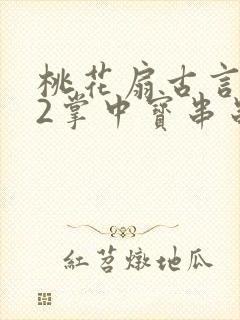 桃花扇古言
2掌中寶串
紅苕燉地瓜